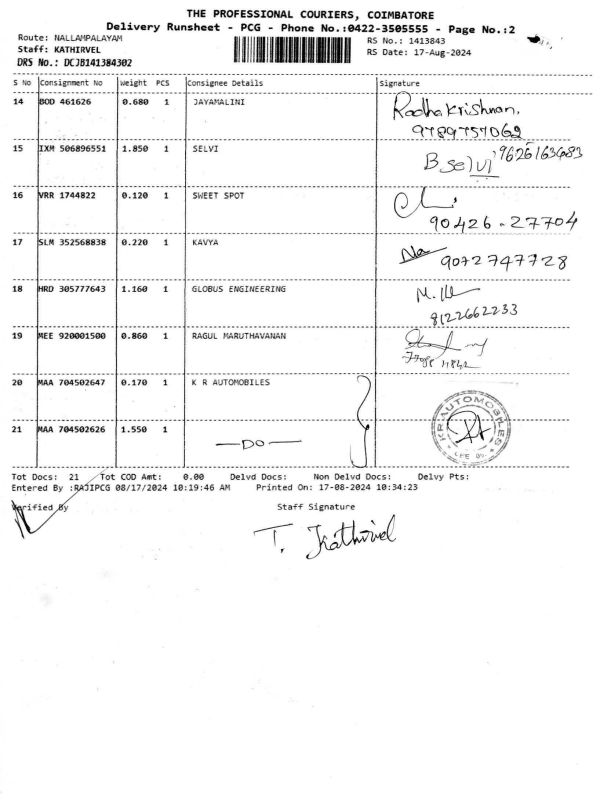 THE PROFESSIONAL COURIERS, COIMBATORE
Delivery Runsheet - PCG - Phone No.:0422-3505555 - Page No.:2
Route: NALLAMPALAYAM
RS No.: 1413843
Staff: KATHIRVEL
RS Date: 17-Aug-2024
DRS No.: DCJB141384302
S No Consignment No Weight PCS Consignee Details Signature
14 BOD 461626 0.680 1 JAYAMALINI Radhakrishnan,
9789757062
15 IXM 506896551 1.850 1 SELVI B selvi 9626163683
16 VRR 1744822 0.120 1 SWEET SPOT
90426-27704
17 SLM 352568838 0.220 1 KAVYA
9072747728
18 HRD 305777643 1.160 1 GLOBUS ENGINEERING
8122662233
19 MEE 920001500 0.860 1 RAGUL MARUTHAVANAN
20 MAA 704502647 0.170 1 K R AUTOMOBILES
KR AUTOMOBILES
21 MAA 704502626 1.550 1 —DO—
Tot Docs: 21 Tot COD Amt: 0.00 Delvd Docs: Non Delvd Docs: Delvy Pts:
Entered By :RAJIPCG 08/17/2024 10:19:46 AM Printed On: 17-08-2024 10:34:23
Verified By Staff Signature
T. Kathirvel